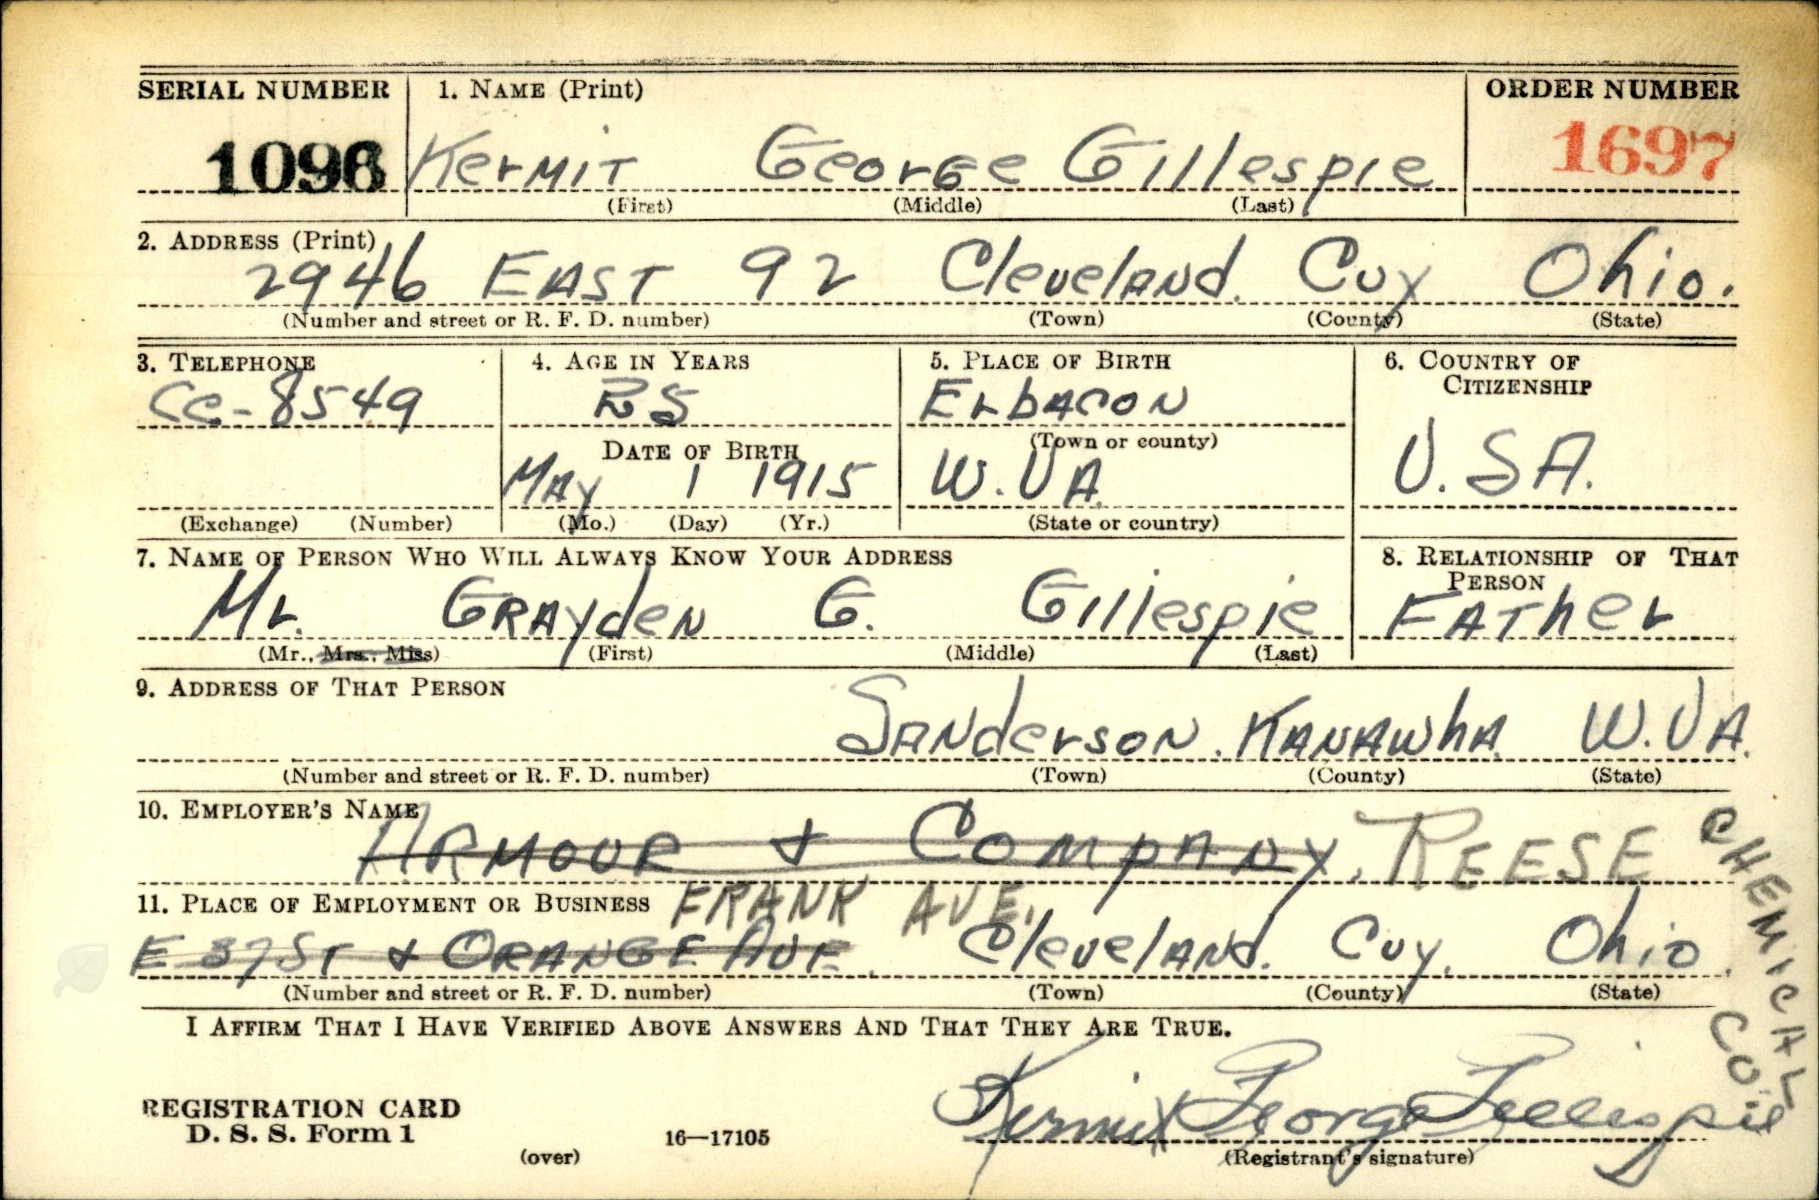 SERIAL NUMBER 1. NAME (Print) ORDER NUMBER
1096 Kermit George Gillespie 1697
(First) (Middle) (Last)
2. ADDRESS (Print)
2946 EAST 92 Cleveland. Cuy Ohio.
(Number and street or R. F. D. number) (Town) (County) (State)
3. TELEPHONE 4. AGE IN YEARS 5. PLACE OF BIRTH 6. COUNTRY OF CITIZENSHIP
Ce-8549 25 Erbacon
DATE OF BIRTH (Town or county)
May 1 1915 W. VA. U.SA.
(Exchange) (Number) (Mo.) (Day) (Yr.) (State or country)
7. NAME OF PERSON WHO WILL ALWAYS KNOW YOUR ADDRESS 8. RELATIONSHIP OF THAT PERSON
Mr. Grayden G. Gillespie Father
(Mr., Mrs., Miss) (First) (Middle) (Last)
9. ADDRESS OF THAT PERSON
Sanderson. Kanawha W. VA.
(Number and street or R. F. D. number) (Town) (County) (State)
10. EMPLOYER'S NAME
Armour & Company. REESE CHEMICAL CO.
11. PLACE OF EMPLOYMENT OR BUSINESS FRANK AVE.
E 37 ST & ORANGE AVE. Cleveland. Cuy. Ohio.
(Number and street or R. F. D. number) (Town) (County) (State)
I AFFIRM THAT I HAVE VERIFIED ABOVE ANSWERS AND THAT THEY ARE TRUE.
REGISTRATION CARD
D. S. S. Form 1 16—17105 Kermit George Gillespie
(over) (Registrant's signature)